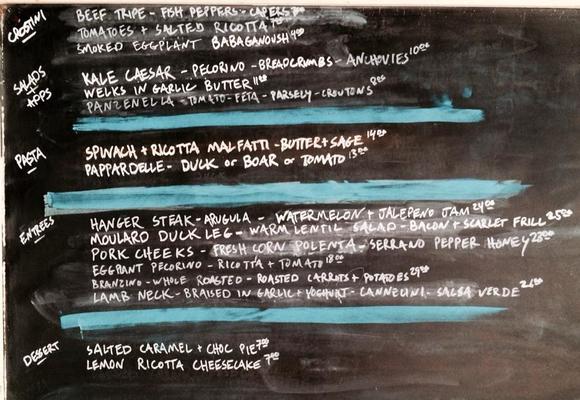 CROSTINI
BEEF TRIPE - FISH PEPPERS - CAPERS 7⁰⁰
TOMATOES + SALTED RICOTTA
SMOKED EGGPLANT BABAGANOUSH
SALADS + APPS
KALE CAESAR - PECORINO - BREADCRUMBS - ANCHOVIES 10⁰⁰
WELKS IN GARLIC BUTTER 11⁰⁰
PANZENELLA - TOMATO - FETA - PARSELY - CROUTONS 8⁰⁰
PASTA
SPINACH + RICOTTA MALFATTI - BUTTER + SAGE 14⁰⁰
PAPPARDELLE - DUCK or BOAR or TOMATO 13⁰⁰
ENTREES
HANGER STEAK - ARUGULA - WATERMELON + JALEPENO JAM 24⁰⁰
MOULARD DUCK LEG - WARM LENTIL SALAD - BACON + SCARLET FRILL 25⁰⁰
PORK CHEEKS - FRESH CORN POLENTA - SERRANO PEPPER HONEY 23⁰⁰
EGGPLANT PECORINO - RICOTTA + TOMATO 18⁰⁰
BRANZINO - WHOLE ROASTED - ROASTED CARROTS + POTATOES 29⁰⁰
LAMB NECK - BRAISED IN GARLIC + YOGHURT - CANNELINI - SALSA VERDE
DESSERT
SALTED CARAMEL + CHOC PIE 7⁰⁰
LEMON RICOTTA CHEESECAKE 7⁰⁰